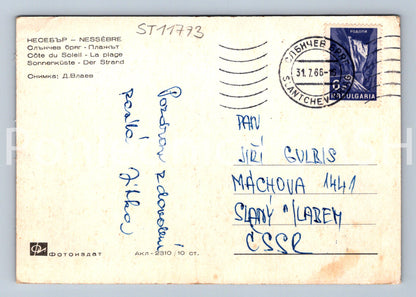 ST11773
НЕСЕБЪР – NESSÈBRE
Слънчев бряг - Плажът
Côte du Soleil - La plage
Sonnenküste - Der Strand
Снимка: Д.Влаев
РОДОПИ
BULGARIA
31.7.66
Pozdrav z dovolené
posílá Jitka
PAN
JIŘÍ GULBIS
MÁCHOVA 1441
SLANÝ N/LABEM
ČSSR
Фотоиздат
Акл.-2310/10 ст.